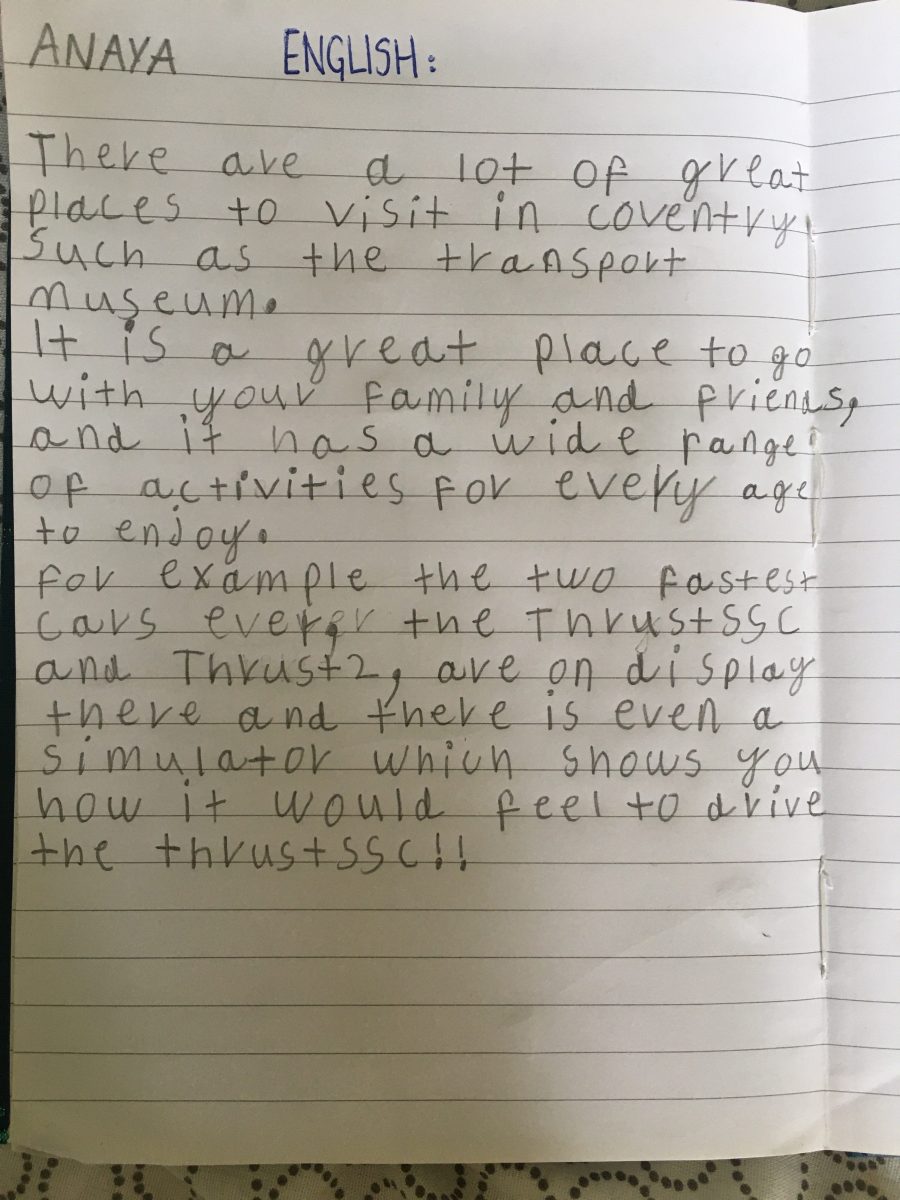 ANAYA ENGLISH:
There are a lot of great
places to visit in coventry
such as the transport
museum.
It is a great place to go
with your family and friends,
and it has a wide range
of activities for every age
to enjoy.
for example the two fastest
cars ever, the ThrustSSC
and Thrust2, are on display
there and there is even a
simulator which shows you
how it would feel to drive
the thrustSSC!!